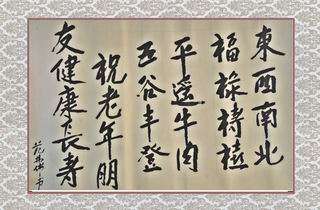 東西南北
福祿梼橲
平遠牛肉
五谷丰登
祝老年朋
友健康長寿